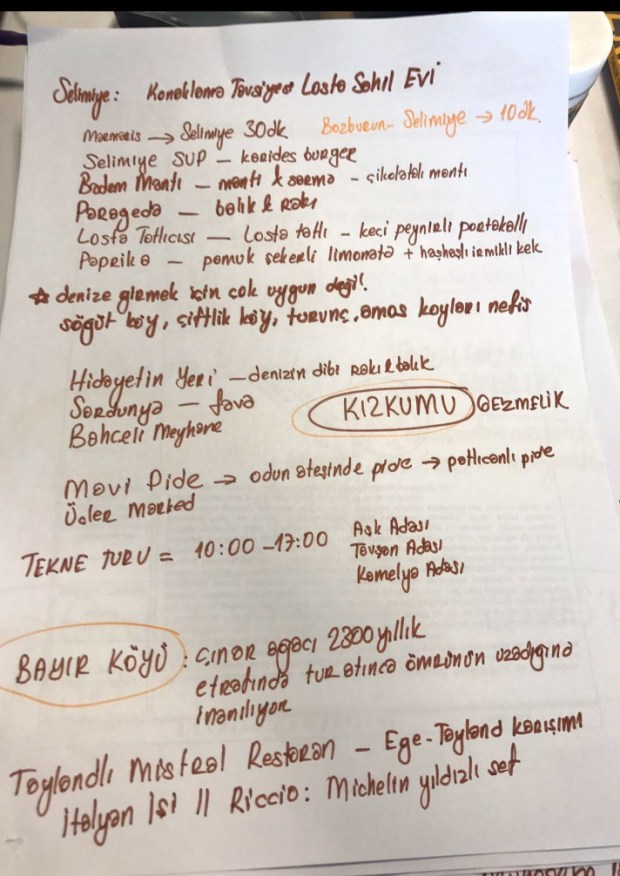 Selimiye: Konaklama Tavsiyesi Losta Sahil Evi
Marmaris → Selimiye 30dk Bozburun - Selimiye → 10dk.
Selimiye SUP - karides burger
Badem Mantı - mantı & sarma - çikolatalı mantı
Paragada - balık & rakı
Losta Tatlıcısı - Losta tatlı - keçi peynirli portakallı
Paprika - pamuk şekerli limonata + haşhaşlı irmikli kek
☆ denize girmek için çok uygun değil.
söğüt köy, çiftlik köy, turunç, amos koyları nefis
Hidayetin Yeri - denizin dibi rakı & balık
Sardunya - fava
KIZKUMU GEZMELİK
Bahçeli Meyhane
Mavi Pide → odun ateşinde pide → patlıcanlı pide
Üçler Market
TEKNE TURU = 10:00 - 17:00 Aşk Adası
Tavşan Adası
Kamelya Adası
BAYIR KÖYÜ : çınar ağacı 2300 yıllık
etrafında tur atınca ömrünün uzadığına
inanılıyor
Taylandlı Mistral Restoran - Ege-Tayland karışımı
italyan isi || Riccio: Michelin yıldızlı şef